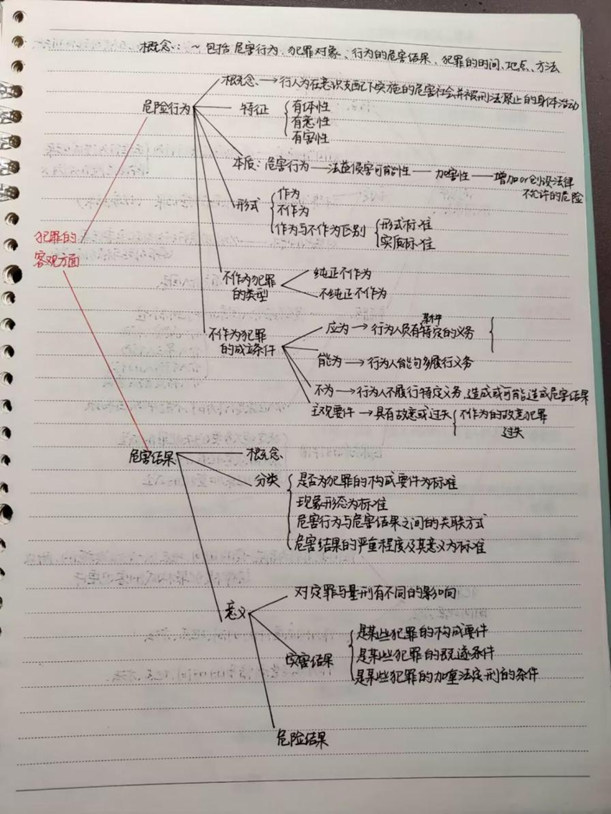 概念：~包括危害行为、犯罪对象、行为的危害结果、犯罪的时间、地点、方法
危险行为
概念→行人为在意识支配下实施的危害社会并被刑法禁止的身体活动
特征
有体性
有意性
有害性
本质：危害行为—法益侵害可能性—加害性—增加or创设法律
不允许的危险
形式
作为
不作为
作为与不作为区别
形式标准
实质标准
犯罪的
客观方面
不作为犯罪
的类型
纯正不作为
不纯正不作为
不作为犯罪
的成立条件
应为→行为人负有特定的义务
能为→行为人能够履行义务
不为→行为人不履行特定义务，造成或可能造成危害结果
主观要件→具有故意或过失
不作为的故意犯罪
过失
危害结果
概念
分类
是否为犯罪的构成要件为标准
现象形态为标准
危害行为与危害结果之间的关联方式
危害结果的严重程度及其意义为标准
意义
对定罪与量刑有不同的影响
实害结果
是某些犯罪的构成要件
是某些犯罪的既遂条件
是某些犯罪的加重法定刑的条件
危险结果